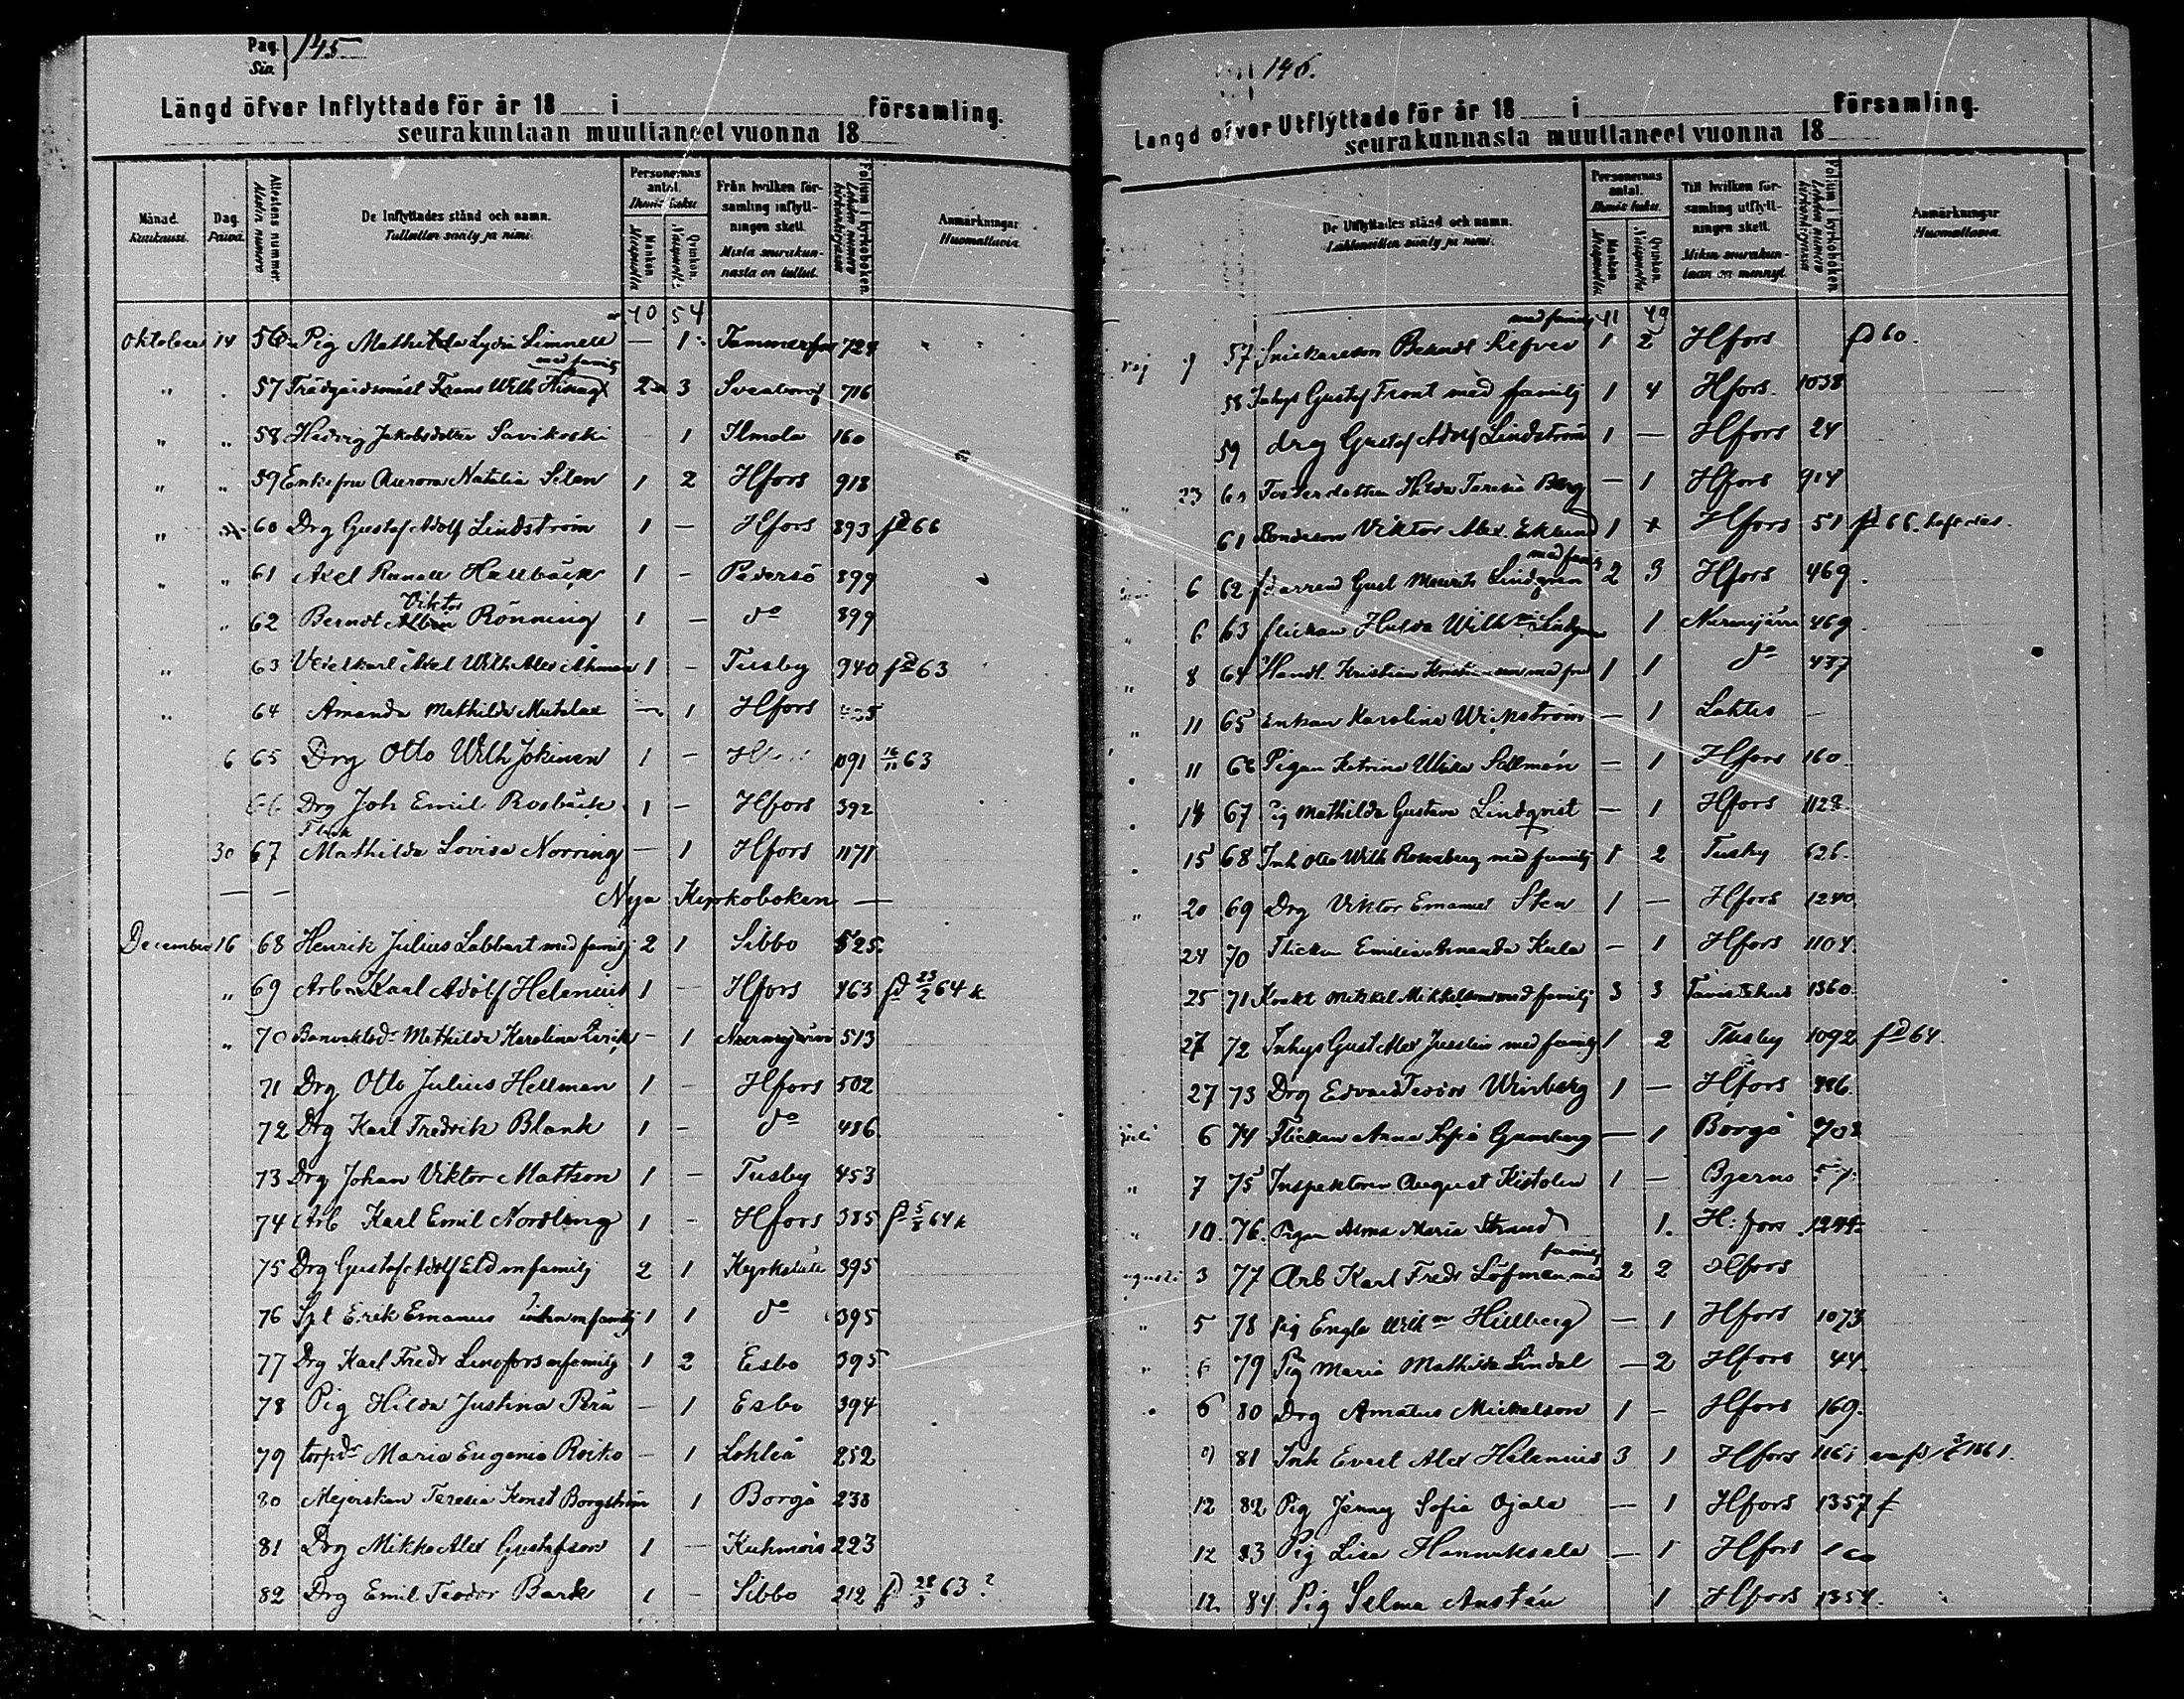 Pag. 145
Siv.
Längd öfver Inflyttade för år 18 i församling.
seurakuntaan muuttaneet vuonna 18
Månad. Kuukausi. Dag. Päivä. Attestens nummer. De Inflyttades stånd och namn. Personernas antal. Mankön. Qvinkön. Från hvilken församling inflyttningen skett. Mistä seurakunnasta on tullut. Folium i kyrkoboken. Anmärkningar Huomattavia.
40 54
Oktober 14 56 Pig Mathilda Lydia Limnell — 1 Tammerfors 728
" 57 Trädgårdsmäst Frans Wilh med familj 2 3 Sveaborg 716
" " 58 Hedvig Jakobsdotter Savikoski 1 Ilmola 160
" " 59 Enkefru Aurora Natalia Silen 1 2 Hfors 918
" 60 Drg Gustaf Adolf Lindström 1 — Hfors 893 fd 66
" " 61 Axel Hellbäck 1 - Pedersö 899
" 62 Berndt Viktor Rönning 1 — do 899
" 63 Axel Wilh Alex Åhman 1 - Tusby 940 fd 63
" 64 Amanda Mathilda 1 Hfors
6 65 Drg Otto Wilh Jokinen 1 — 1091 16/11 63
66 Drg Joh Emil Rosbäck 1 - Hfors 392
30 67 Flick Mathilda Lovisa Norring — 1 Hfors 1171
— — Nya Kyrkoboken —
December 16 68 Henrik Julius Labbart med familj 2 1 Sibbo 525
" 69 Arb Karl Adolf Helenius 1 — Hfors 463 fd 23/2 64 k
" 70 Banvaktsdr Mathilda Karolina - 1 Nurmijärvi 513
71 Drg Otto Julius Hellman 1 - Hfors 502
72 Drg Karl Fredrik Blank 1 - do 486
73 Drg Johan Viktor Mattson 1 - Tusby 453
74 Arb Karl Emil Nordling 1 - Hfors 385 fd 5/8 64 k
75 Drg Gustaf Adolf Eld m familj 2 1 Kyrkslätt 395
76 Erik Emanuel m familj 1 1 do 395
77 Drg Karl Fredr Lindfors m familj 1 2 Esbo 395
78 Pig Hilda Justina Perä — 1 Esbo 394
79 torpdr Maria Eugenia Roiko — 1 Lohteå 252
80 Mejerskan Teresia Konst Borgström 1 Borgå 238
81 Drg Mikko Alex Gustafson 1 — Kuhmois 223
82 Drg Emil Teodor Bark 1 — Sibbo 212 fd 28/3 63 ?
146.
Längd öfver Utflyttade för år 18 i församling.
seurakunnasta muuttaneet vuonna 18
De Utflyttades stånd och namn. Personernas antal. Mankön. Qvinkön. Till hvilken församling utflyttningen skett. Mihin seurakuntaan on mennyt. Folium i kyrkoboken. Anmärkningar Huomattavia.
41 49
57 Snickareson Berndt med familj 1 2 Hfors fd 60.
58 Inhys Gustaf Front med familj 1 4 Hfors. 1038
59 drg Gustaf Adolf Lindström 1 — Hfors 24
" 23 60 Fosterdottern Hilda Teresia Berg — 1 Hfors 914
61 Bondeson Viktor Alex. Eklund 1 Hfors 51 fd 66.
6 62 Gust Mauritz Lindgren med familj 2 3 Hfors 469
" 6 63 flickan Hulda Wilhna Lindgren 1 Nurmijärvi 469
" 8 64 Handl. Kristian Kristiansson med fru 1 1 do 437
" 11 65 Enkan Karolina Wickström — 1 Lahtis —
11 66 Pigan Katrina Ulrika Sallmén — 1 Hfors 160
14 67 Pig Mathilda Gustava Lindqvist — 1 Hfors 1128
15 68 Inh Otto Wilh Rosenberg med familj 1 2 Tusby 626
" 20 69 Drg Viktor Emanuel Sten 1 — Hfors 1240
24 70 Flickan Emilia Amanda Kula — 1 Hfors 1104
25 71 Mikkel Mikkelson med familj 3 3 Tavastehus 1360
27 72 Inhys Gust Alex Jusslin med familj 1 2 Tusby 1092 fd 64.
27 73 Drg Edvard Teodor Winberg 1 — Hfors
juli 6 74 Flickan Anna Sofia Gumberg — 1 Borgå 708
" 7 75 Inspektoren August Kistolin 1 — Bjerno
" 10. 76. Pigan Alma Maria Strand 1. H:fors 1244
ugusti 3 77 Arb Karl Fredr Löfman med familj 2 2 Hfors
" 5 78 Pig Engla Wilhna Hillberg — 1 Hfors 1073
" 6 79 Pig Maria Mathilda Lindal — 2 Hfors 44
6 80 Drg Amatus Mickelson 1 — Hfors 169.
9 81 Inh Evert Alex Helenius 3 1 Hfors 1161
12 82 Pig Jenny Sofia Ojala — 1 Hfors 1357 f
12 83 Pig Lisa Hannuksela — 1 Hfors
12. 84 Pig Selma Austén 1 Hfors 1354.